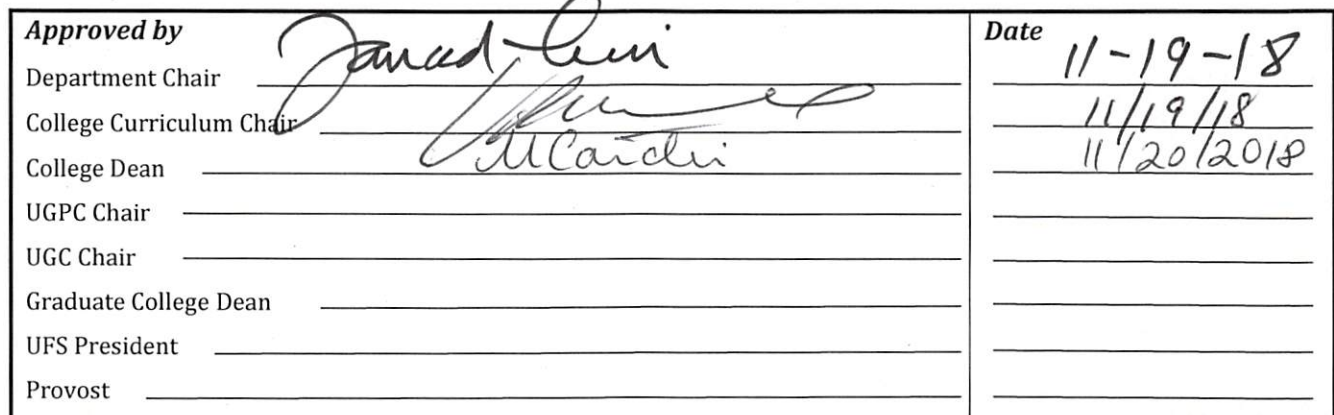 Approved by Date
Department Chair 11-19-18
College Curriculum Chair 11/19/18
College Dean 11/20/2018
UGPC Chair
UGC Chair
Graduate College Dean
UFS President
Provost